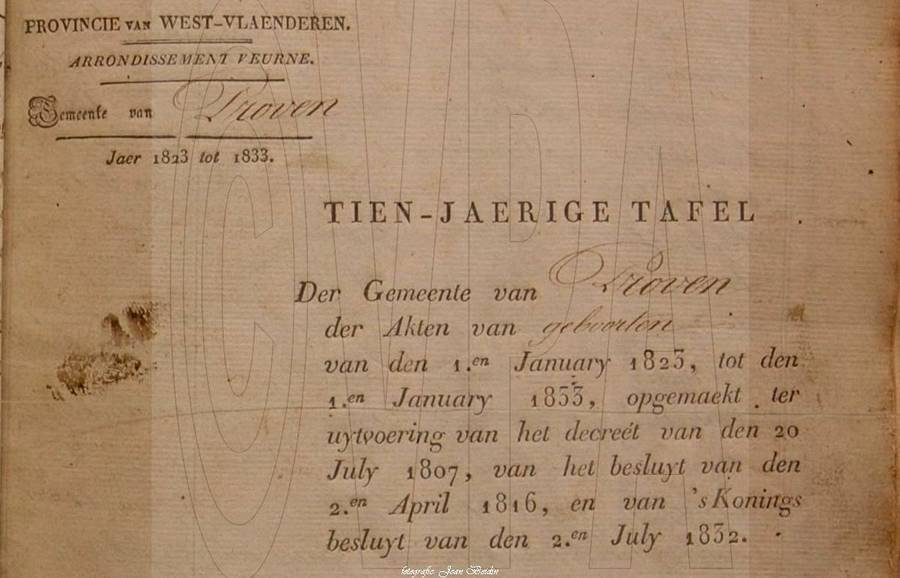 PROVINCIE VAN WEST-VLAENDEREN.
ARRONDISSEMENT VEURNE.
Gemeente van Proven
Jaer 1823 tot 1833.
TIEN-JAERIGE TAFEL
Der Gemeente van Proven
der Akten van geboorten
van den 1.en January 1823, tot den
1.en January 1833, opgemaekt ter
uytvoering van het decreét van den 20
July 1807, van het besluyt van den
2.en April 1816, en van 's Konings
besluyt van den 2.en July 1832.
CVBA
fotografie: Joan Berdin